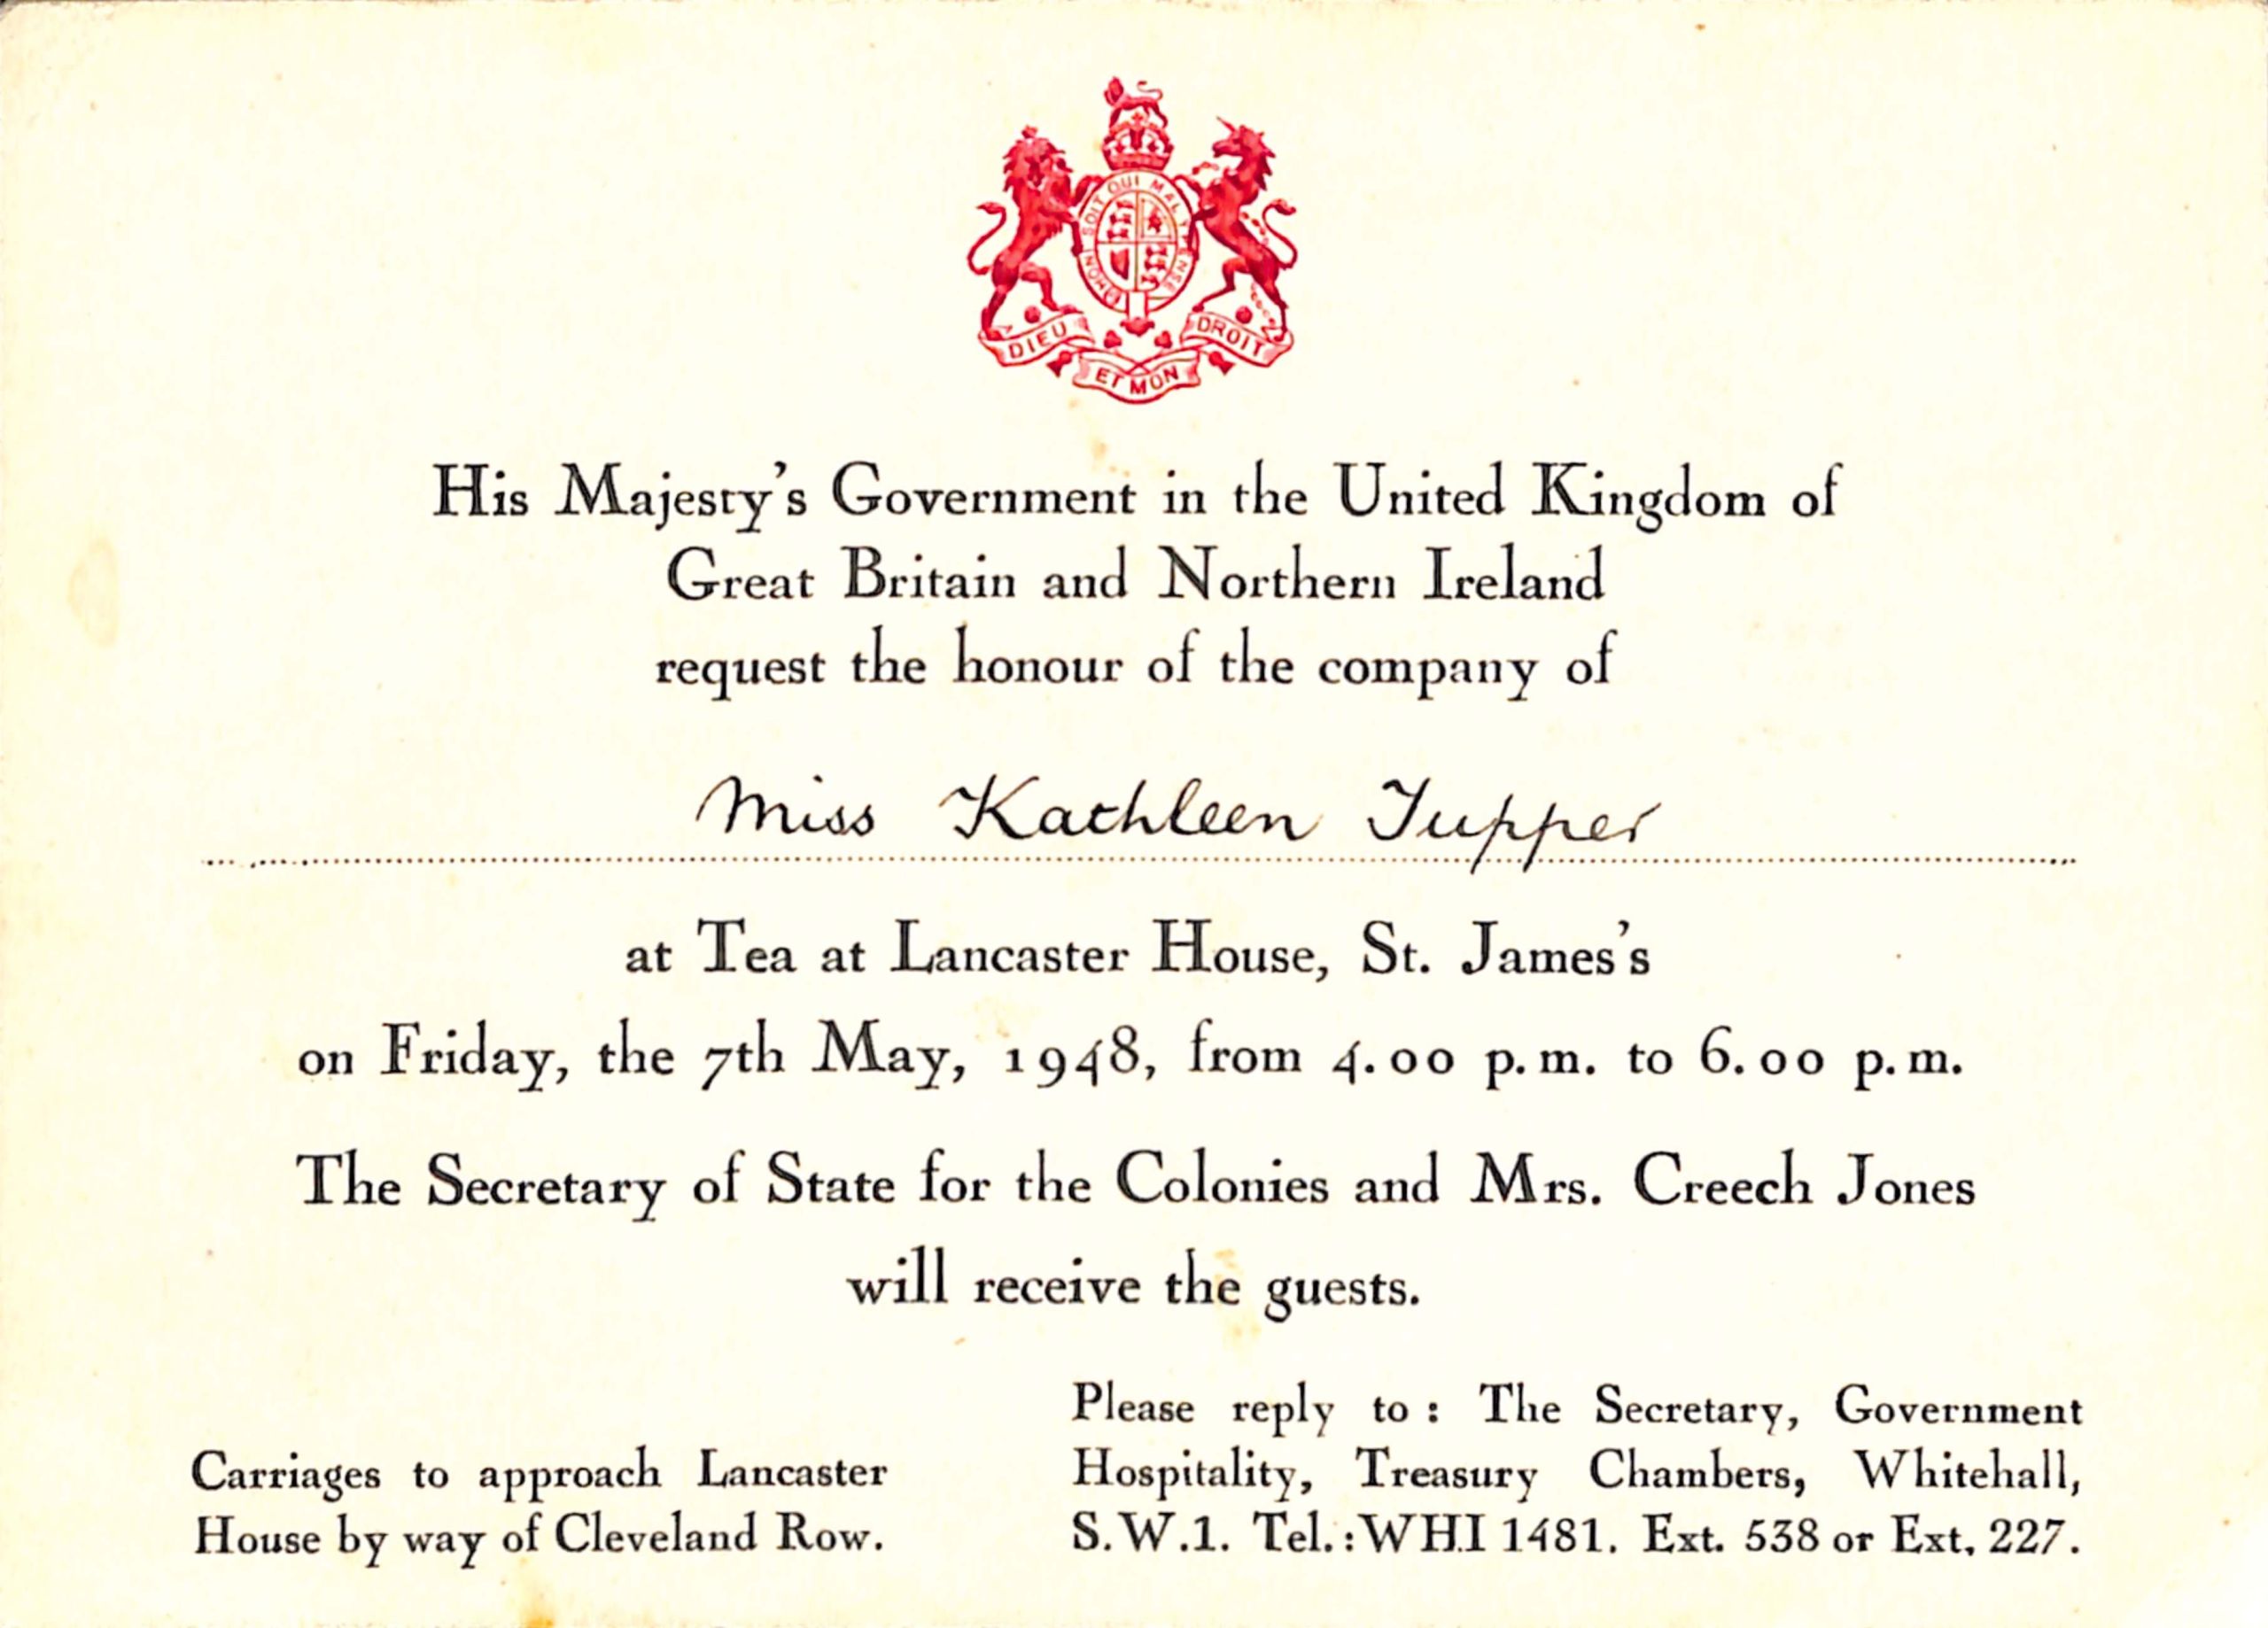 HONI SOIT QUI MAL Y PENSE
DIEU ET MON DROIT
His Majesty's Government in the United Kingdom of
Great Britain and Northern Ireland
request the honour of the company of
Miss Kathleen Tupper
at Tea at Lancaster House, St. James's
on Friday, the 7th May, 1948, from 4.00 p.m. to 6.00 p.m.
The Secretary of State for the Colonies and Mrs. Creech Jones
will receive the guests.
Carriages to approach Lancaster
House by way of Cleveland Row.
Please reply to : The Secretary, Government
Hospitality, Treasury Chambers, Whitehall,
S.W.1. Tel.:WHI 1481. Ext. 538 or Ext. 227.